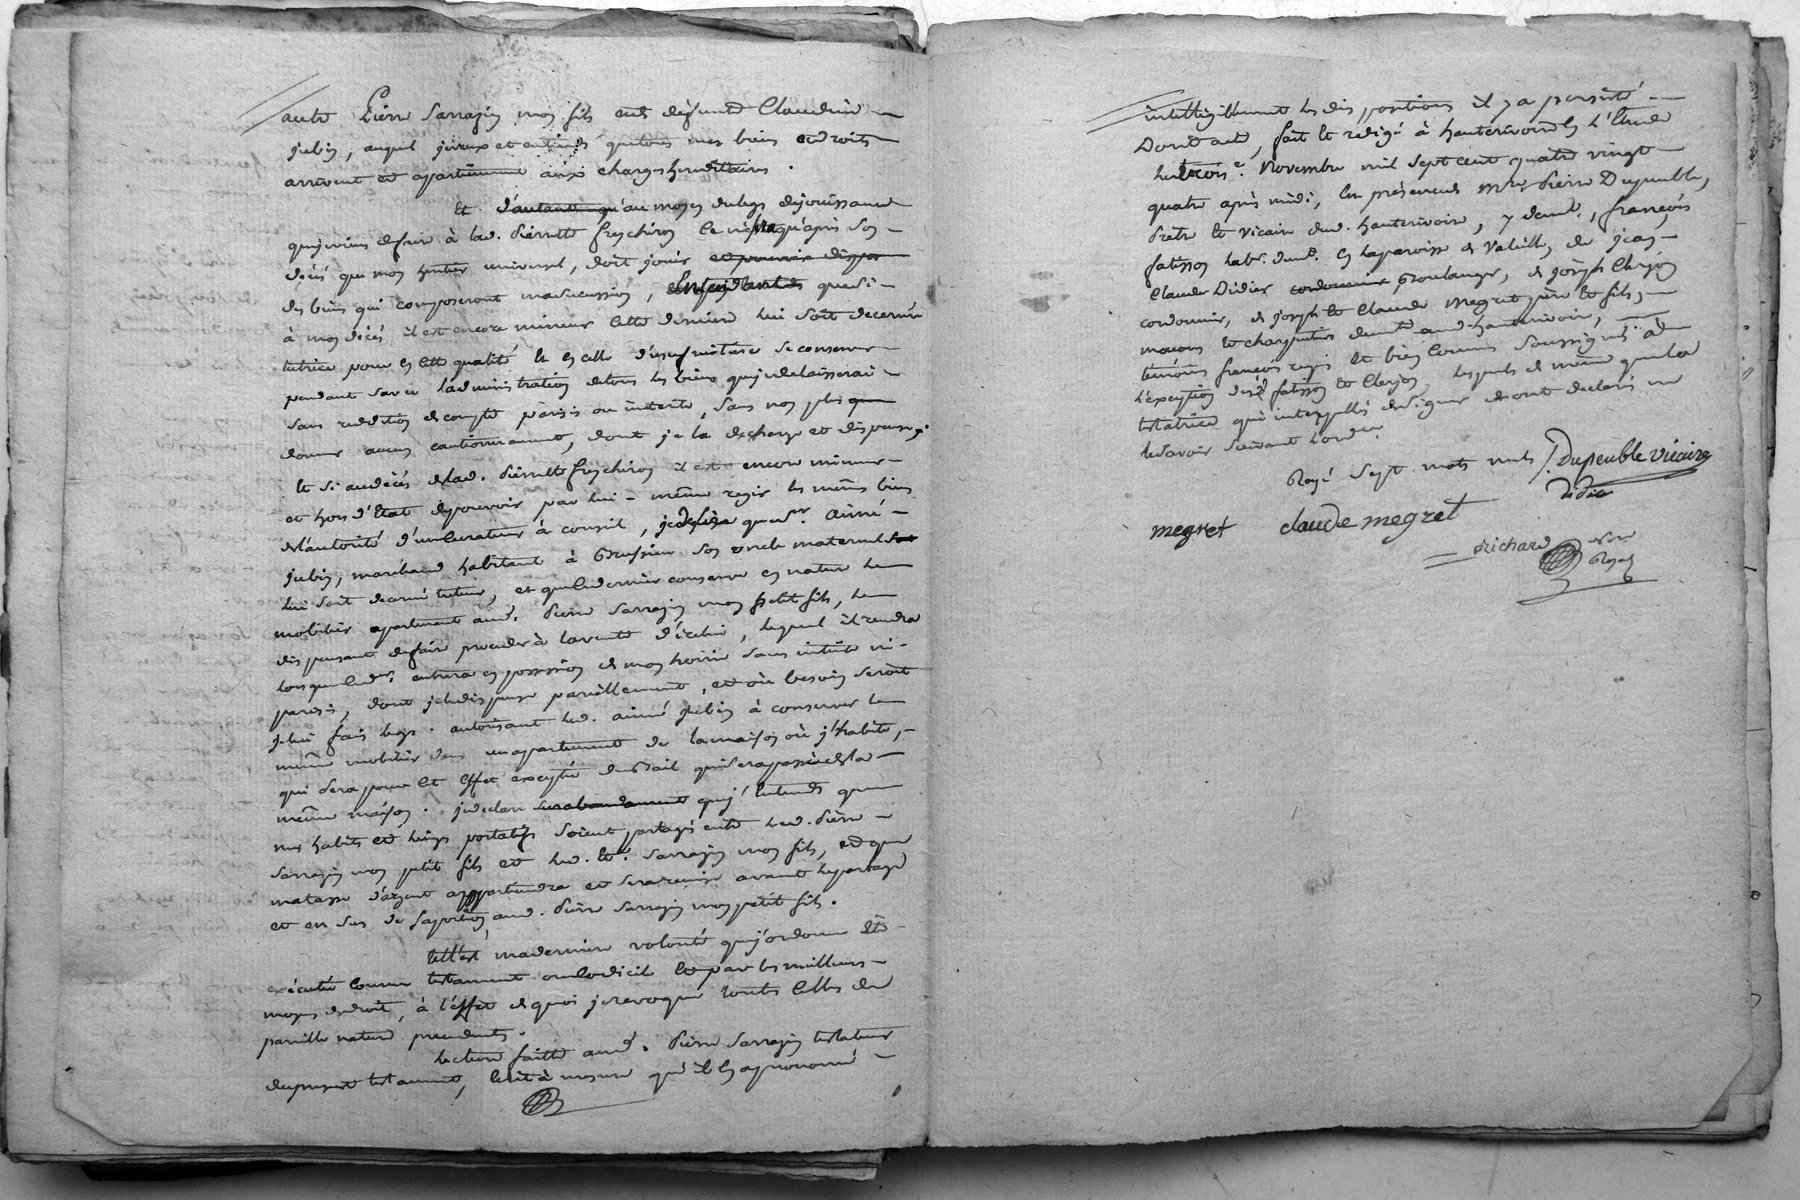 autre Pierre Sarrazin mon fils de deffunte Claudine
Jubin, auquel je veux et entends que tous mes biens et droits
arrivent et apartiennent aux charges hereditaires.
Et d'autant qu'au moyen du legs de jouissance
que je viens de faire à lad. Pierrette Freychiron ce n'est qu'après son
décès que mon heritier universel, doit jouir et pouvoir disposer
des biens qui composeront ma succession, que si
à mon décès il est encore mineur cette derniere lui soit decernée
tutrice pour en cette qualité et en celle d'usufruitiere se conserver
pendant sa vie l'administration de tous les biens que je delaisserai
sans reddition de compte parisis ou interets, sans non plus que
donner aucun cautionnement, dont je la decharge et dispense.
Et si au décès de lad. Pierrette Freychiron il est encore mineur
et hors d'Etat de pouvoir par lui-même regir les mêmes biens
de l'autorité d'un curateur à conseil, je desire que sr. aimé
Jubin, marchand habitant à Brussieu son oncle maternel
lui soit decerné tuteur, et que ce dernier conserve en nature le
mobilier apartenant aud. Pierre Sarrazin mon petit fils, le
dispensant de faire proceder à la vente d'icelui, lequel il rendra
lorsque led. entrera en possession de mon hoirie sans interets ni
parisis, dont je le dispense pareillement, et où besoin seroit
je lui fais legs. autorisant led. aimé Jubin à conserver le
même mobilier dans un apartement de la maison où j'habite,
qui sera pour cet effet excepté du Bail qui sera passé de la
même maison. Je declare surabondament que j'entends que
mes habits et linges portatifs soient partagés entre led. Pierre
Sarrazin mon petit fils et led. Sarrazin mon fils, et que
ma tasse d'argent appartiendra et sera remise avant le partage
et en sus de sa portion aud. Pierre Sarrazin mon petit fils.
telle est ma derniere volonté que j'ordonne être
exécutée comme testament ou codicile et par les meilleurs
moyens de droit, à l'effet de quoi je revoque toutes celles de
pareille nature precedentes.
lecture faitte aud. Pierre Sarrazin testateur
du present testament, écrit à mesure qu'il en a prononcé
intelligiblement les dispositions il y a persisté
Dont acte, fait et redigé à hauterivoire en l'Etude
le trois.e Novembre mil sept cent quatre vingt
quatre après midi, en présence de mre Pierre Dupeuble,
Prêtre et Vicaire dud. hauterivoire, y demt., françois
fatisson labr. demt. en la paroisse de Valeille, de jean
Claude Didier cordonnier Boulanger, de joseph Clerjon
cordonnier, de joseph et Claude Megret père et fils,
macons et charpentiers demt. aud. hauterivoire,
temoins requis et bien connus soussignés à
l'exception desd. fatisson et Clerjon, lesquels de même que la
testatrice qui interpellés de signer ont declaré ne
le savoir suivant l'ordce.
Rayé sept mots nuls /. Dupeuble vicaire
Didier
megret claude megret
Richard nore
Royal